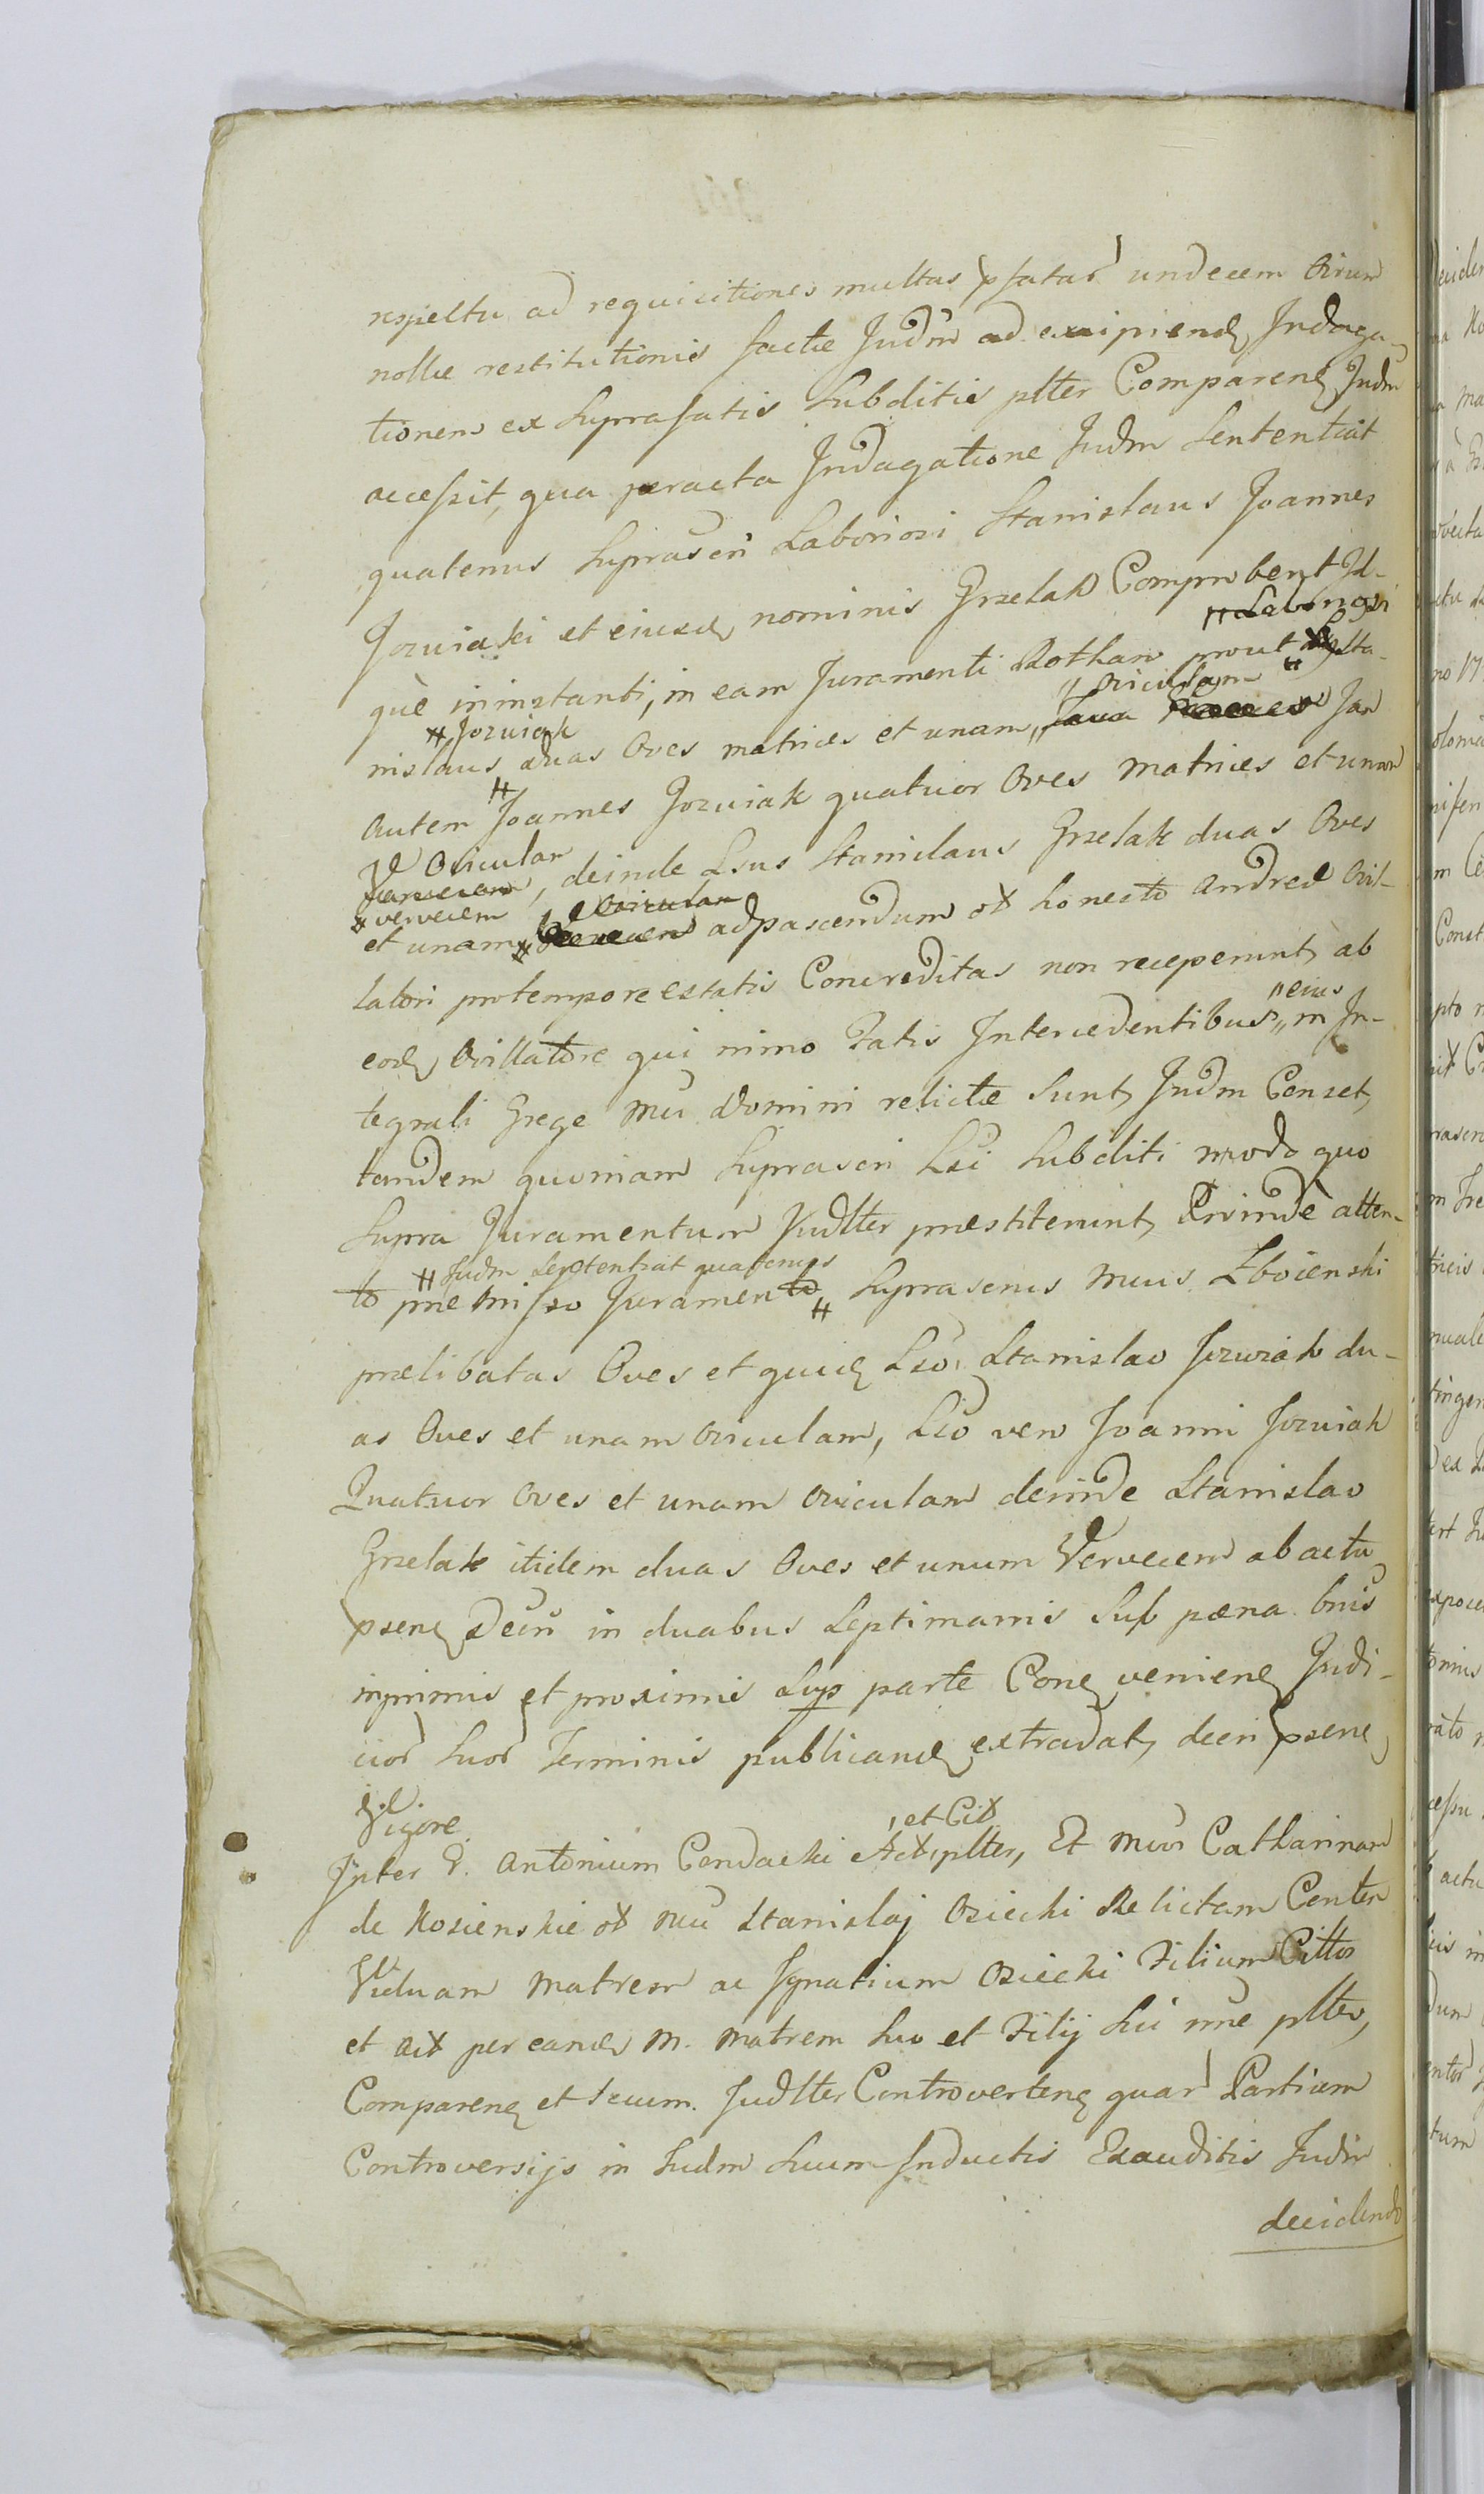 respectu ad requisitiones multas psatar undecem Ovium
nollae restitutionis factae Judm ad excipiend Indaga-
tionem ex Suprafatis Subditis plter Comparen Judm
accessit, qua peracta Indagatione Judm Sententiat
quatenus Suprascri Laboriosi Stanislaus Joannes
Jozwiaki et eiusd nominis Grzelak Comprobent Id-
" Laboriosi
què ininstanti, in eam Juramenti Rotham prout " Sta-
# Jozwiak " Oviculam
nislaus duas Oves matrices et unam " Jan
autem # Joannes Jozwiak quatuor Oves Matrices et unam
Oviculam
vervecem, deinde Lsus Stanislaus Grzelak duas Oves
# vervecem Oviculam
et unam # adpascendum ot honesto Andreae Ovil-
latori protempore estatis Concreditas non receperunt, ab
" eius
eod Ovillatore qui nimo Fatis Intercedentibus " in In-
tegrali Grege Mci Domini relictae Sunt, Judm Censet,
tandem quoniam Suprascri Lsi Subditi modo quo
Supra Juramentum Judlter praestiterunt, Proinde atten-
# Judm Sententiat quatenus
to praemisso Juramento # Suprascrius Mcus Zboienski
praelibatas Oves et quid Lso Stanislao Jozwiak du-
as Oves et unam oviculam, Lso vero Joanni Jozwiak
Quatuor Oves et unam oviculam deinde Stanislao
Grzelak itidem duas Oves et unum Vervecem ab actu
psene Decri in duabus Septimanis Sub paena bnis
inprimis et proximis Sup parte Cone veniene Judi-
cior Suor Terminis publicand extradat, decri psene
Vigore.
, et Cit
Inter G. Antonium Cendacki Act plter, Et Mcos Catharinam
de Kosienskie ot Mci Stanislaj Osiecki Relictam Conten
Viduam Matrem ac Ignatium Osiecki Filium Cittos
et Act per eand M. Matrem Suo et Filij Sui nne plter,
Comparene et Secum Judlter Controvertene quar Partium
Controversijs in Judm Suum Inductis Exauditis Judm
decidendo